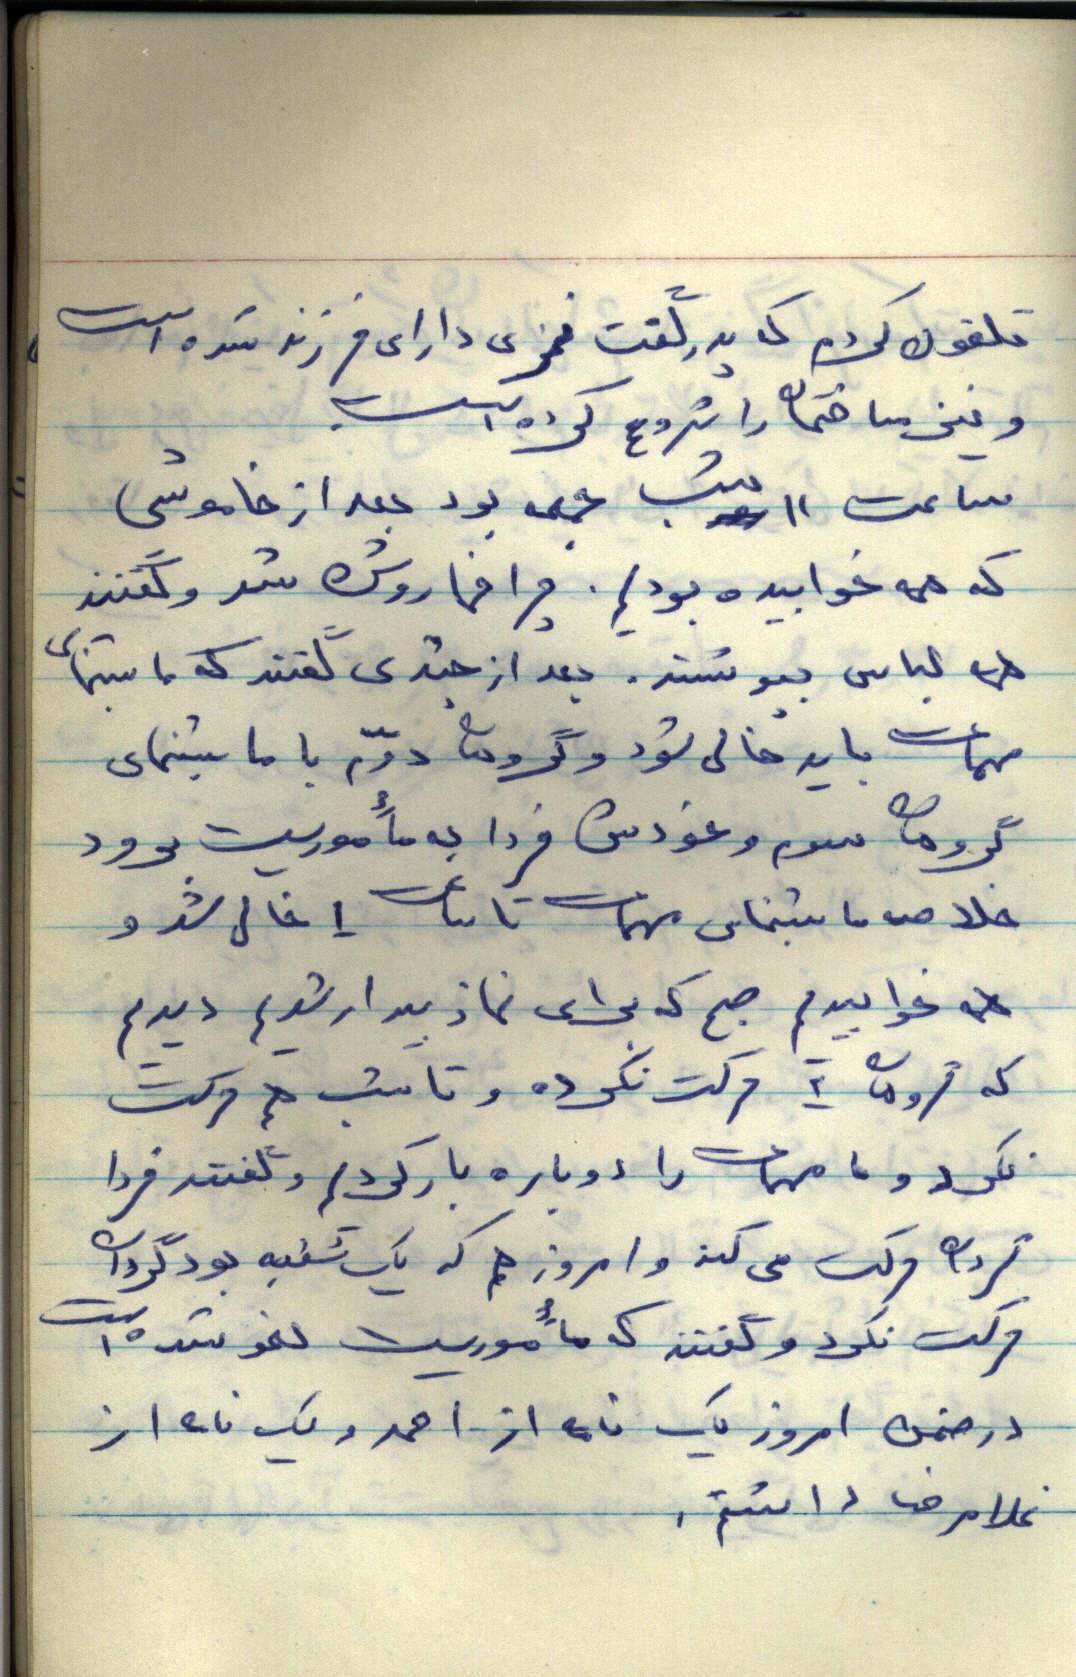 تلفون کردم که پدر گفت فخری دارای فرزند شده است
و نیز ساختمان را شروع کرده است
ساعت ۱۱ شب جمعه بود بعد از خاموشی
که همه خوابیده بودیم . چراغها روشن شد و گفتند
همه لباس بپوشند . بعد از چندی گفتند که ماشینهای
مهمات باید خالی شود و گروهان دوّم با ماشینهای
گروهان سوم و خودش فردا به مأموریت برود
خلاصه ماشینهای مهمات تا ساعت ۱ خالی شد و
همه خوابیدیم صبح که برای نماز بیدار شدیم دیدیم
که گروهان ۲ حرکت نکرده و تا شب هم حرکت
نکرد و ما مهمات را دوباره بار کردیم و گفتند فردا
گردان حرکت می کند و امروز هم که یک شنبه بود گردان
حرکت نکرد و گفتند که مأموریت لغو شده است
در ضمن امروز یک نامه از احمد و یک نامه از
غلامرضا داشتم .